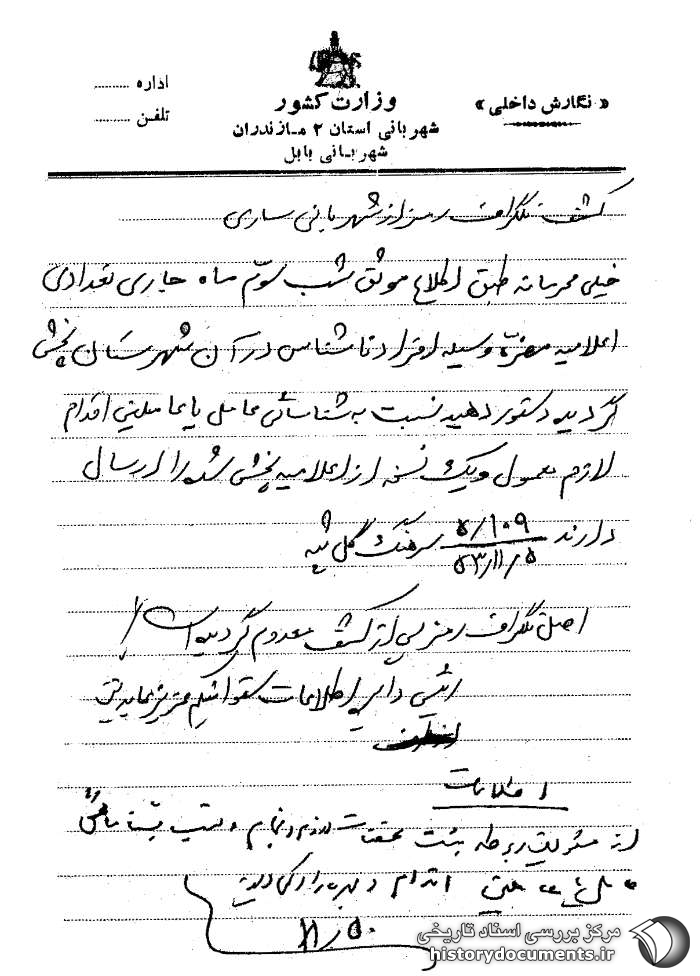 وزارت کشور
شهربانی استان ۲ مازندران
شهربانی بابل
« نگارش داخلی »
اداره ..........
تلفن ..........
کشف تلگراف رمز از شهربانی ساری
خیلی محرمانه طبق اطلاع موثق شب سوم ماه جاری تعدادی
اعلامیه مضره وسیله افراد ناشناس در آن شهرستان پخش
گردیده دستور دهید نسبت به شناسائی عامل یا عاملین اقدام
لازم معمول و یک نسخه از اعلامیه پخش شده را ارسال
دارند ۵/۱۰۹ ۵۳/۱۱/۵ سرهنگ گل
اصل تلگراف رمز پس از کشف معدوم گردیده است
رئیس دایره اطلاعات
اطلاعات
از تحقیقات لازم انجام و
اقدام و
مرکز بررسی اسناد تاریخی
historydocuments.ir